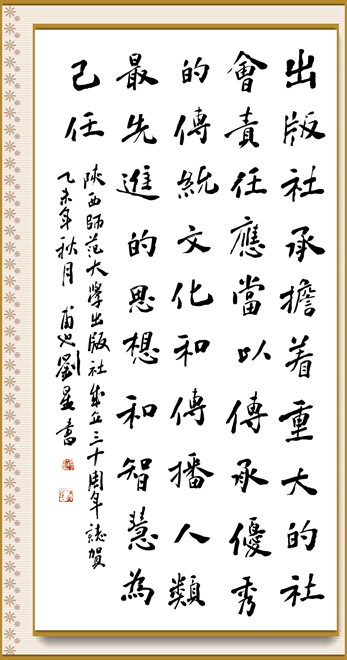 出版社承擔着重大的社
會責任應當以傳承優秀
的傳統文化和傳播人類
最先進的思想和智慧為
己任
陝西師范大學出版社成立三十周年誌賀
乙未年秋月 甫也劉星書